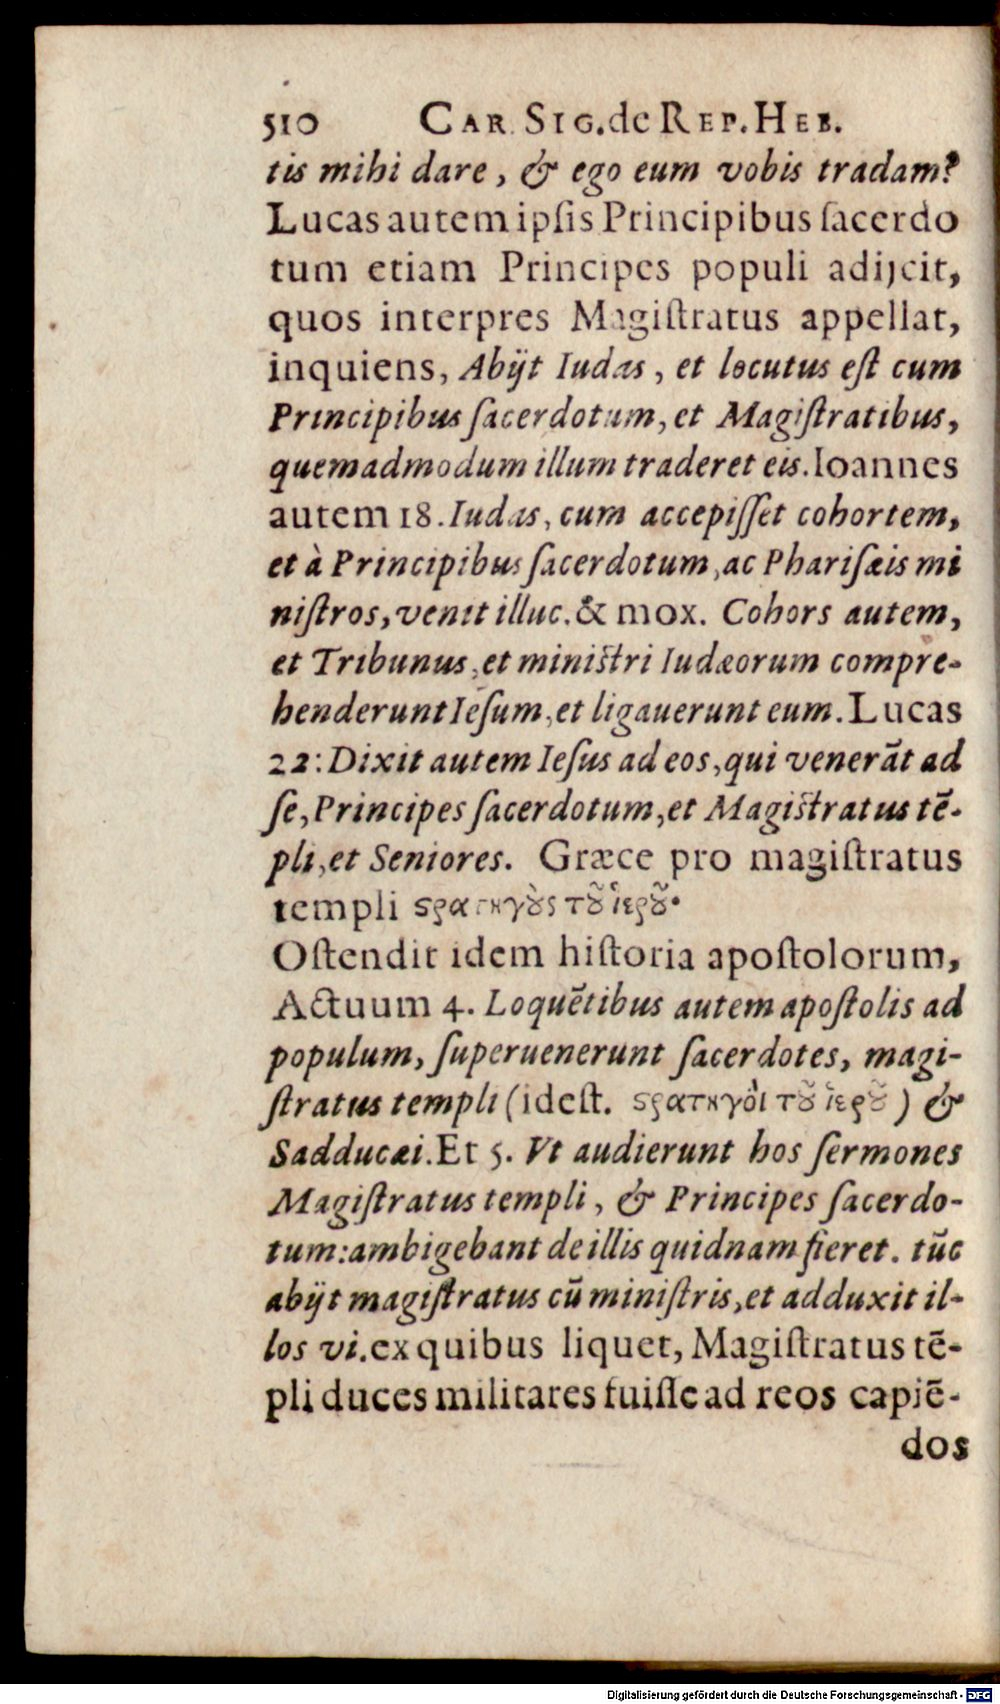 510 CAR. SIG. de REP. HEB.
tis mihi dare, & ego eum vobis tradam?
Lucas autem ipſis Principibus ſacerdo
tum etiam Principes populi adijcit,
quos interpres Magiſtratus appellat,
inquiens, Abijt Iudas, et locutus eſt cum
Principibus ſacerdotum, et Magiſtratibus,
quemadmodum illum traderet eis. Ioannes
autem 18. Iudas, cum accepiſſet cohortem,
et à Principibus ſacerdotum, ac Phariſæis mi
niſtros, venit illuc. & mox. Cohors autem,
et Tribunus, et miniſtri Iudæorum compre-
henderunt Ieſum, et ligauerunt eum. Lucas
22: Dixit autem Ieſus ad eos, qui venerāt ad
ſe, Principes ſacerdotum, et Magiſtratus tē-
pli, et Seniores. Græce pro magiſtratus
templi ϛρατηγȣ̀ς τȣ͂ ἱερȣ͂.
Oſtendit idem hiſtoria apoſtolorum,
Actuum 4. Loquētibus autem apoſtolis ad
populum, ſuperuenerunt ſacerdotes, magi-
ſtratus templi (ideſt. ϛρατηγὸι τȣ͂ ἱερȣ͂) &
Sadducæi. Et 5. Vt audierunt hos ſermones
Magiſtratus templi, & Principes ſacerdo-
tum: ambigebant de illis quidnam fieret. tūc
abijt magiſtratus cū miniſtris, et adduxit il-
los vi. ex quibus liquet, Magiſtratus tē-
pli duces militares fuiſſe ad reos capiē-
dos
Digitalisierung gefördert durch die Deutsche Forschungsgemeinschaft - DFG